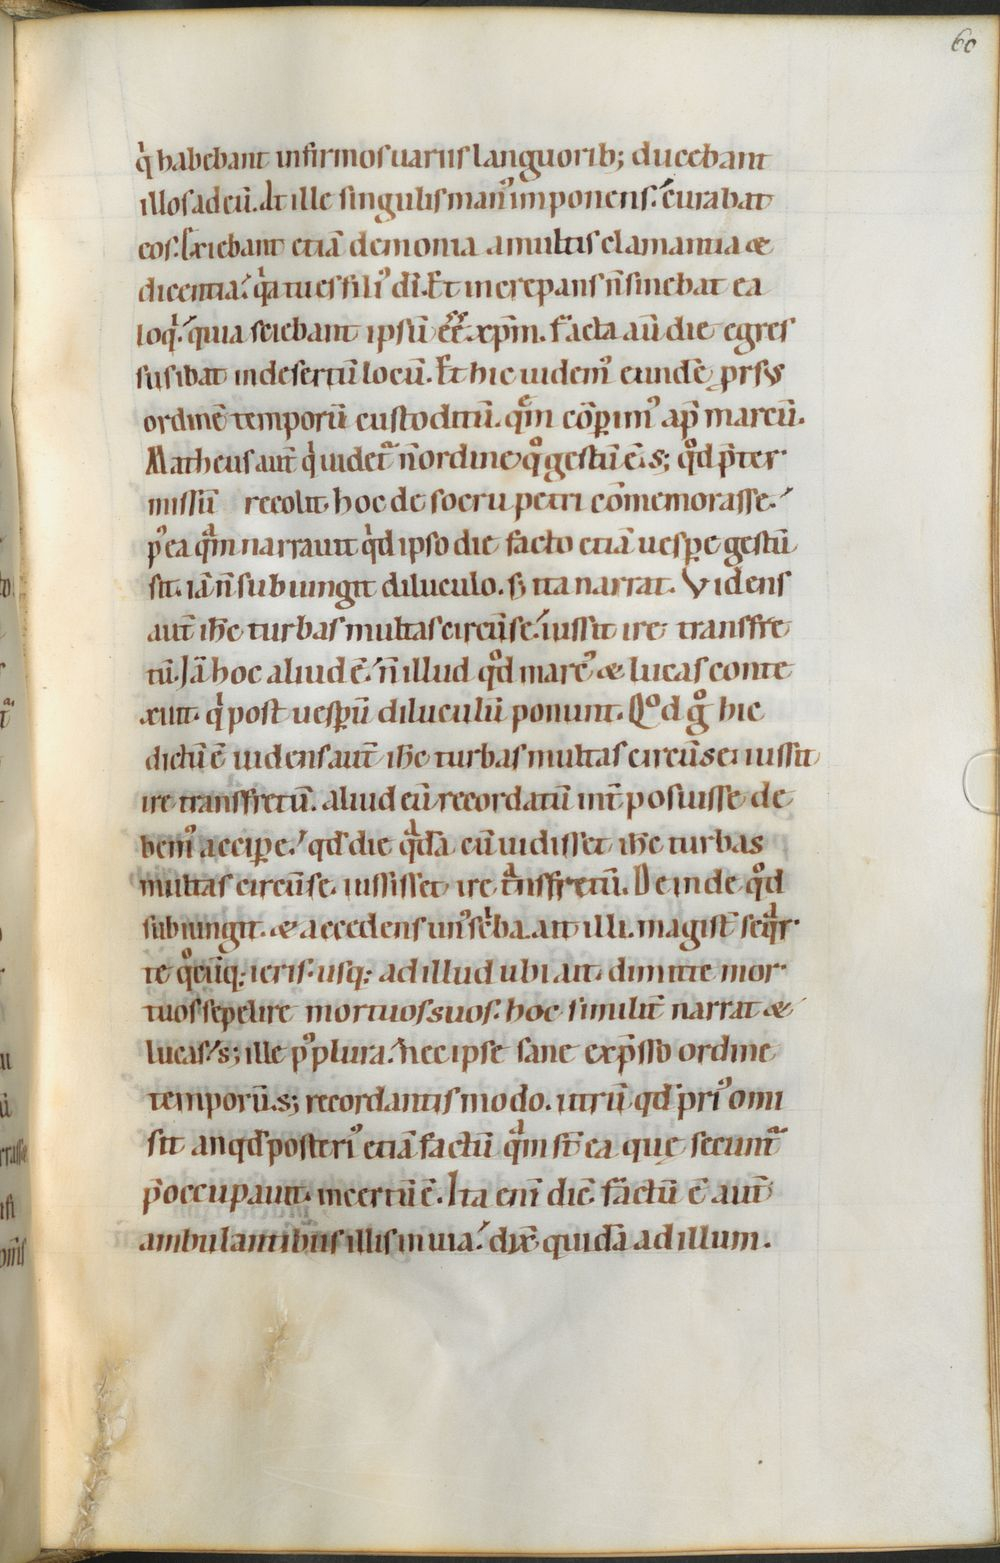 60
q̍ habebant infirmos uariis languorib; ducebant
illos ad eū. At ille singulis man᾿ imponens.᾿ curabat
eos. Exiebant etiā demonia a multis clamantia &
dicentia.᾿ q̍a tu es fili᾿ dī. Et increpans ñ sinebat ea
loq̍.᾿ quia sciebant ipsū ēē xp̄m. facta aū die egres
sus ibat in desertū locū. Et hic uidem᾿ eundē prsus
ordinē temporū custoditū. quē cōperim᾿ ap̄ marcū.
Matheus aut̄ q̍ uidet᾿ ñ ordine quo gestū ē. s; qͦd p̄ter
missū recolit. hoc de socru petri cōmemorasse.᾿
p᾿ea quam narrauit q̍d ipso die facto etiā uespe gestū
sit. iā ñ subiungit diluculo. s; ita narrat. Videns
aut̄ ihc̄ turbas multas circū se.᾿ iussit ire transfre
tū. Jā hoc aliud ē.᾿ ñ illud qͦd marc᾿ & lucas conte
xunt. q̍ post uesperū diluculū ponunt. Qͦd gͦ hic
dictū ē uidens aut̄ ihc̄ turbas multas circū se iussit
ire transfretū. aliud eū recordatū int̄posuisse de
bem᾿ accipe.᾿ qd̄ die q̍dā cū uidisset ihc̄ turbas
multas circū se iussisset ire trānsfretū. Deinde qͦd
subiungit. & accedens un᾿ sc̍ba. ait illi. magist̄ seq̍r
te qͦcūq; ieris. usq; ad illud ubi ait. dimitte mor
tuos sepelire mortuos suos. hoc similit̄ narrat &
lucas.᾿ s; ille p᾿ plura.᾿ nec ipse sane exp̄sso ordine
temporū. s; recordantis modo. utrū qd̄ pri᾿ omi
sit an qd̄ posteri᾿ etiā factū quam st̄ ea quę secunt᾿
p̄occupauit. incertū ē. Ita enī dic̄. factū ē aut̄
ambulantibus illis in uia.᾿ dix̄ quidā ad illum.